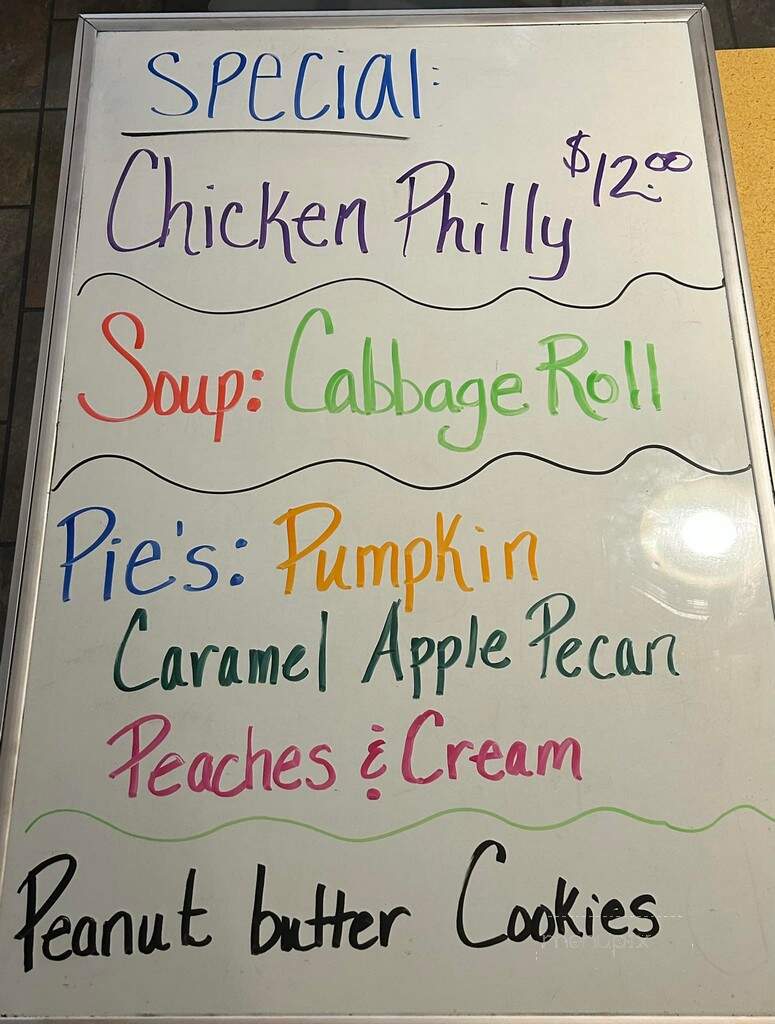 Special:
Chicken Philly $12.00
Soup: Cabbage Roll
Pie's: Pumpkin
Caramel Apple Pecan
Peaches & Cream
Peanut butter Cookies
menupix